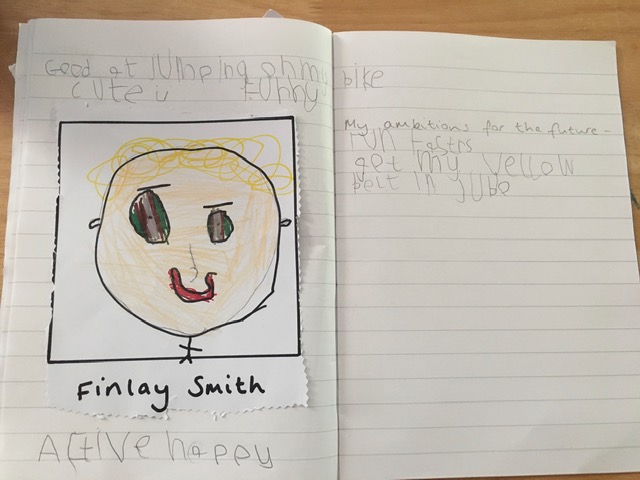 Good at jumping on my bike
cute funny
Finlay Smith
Active happy
My ambitions for the future -
run fastrs
get my yellow
belt in jube